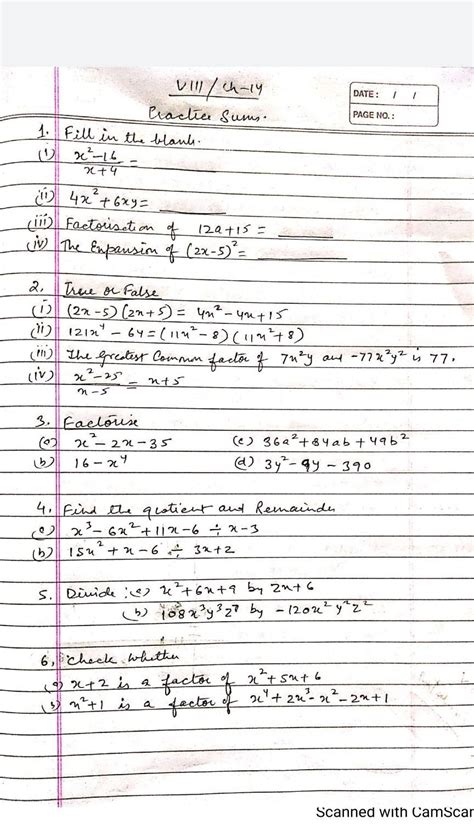 VIII / Ch-14
DATE: / /
Practice Sums.
PAGE NO.:
1. Fill in the blank.
(i) x²-16 / x+4 = ______
(ii) 4x² + 6xy = ______
(iii) Factorisation of 12a+15 = ______
(iv) The Expansion of (2x-5)² = ______
2. True or False
(i) (2x-5)(2x+5) = 4x²-4x+15
(ii) 121x⁴ - 64 = (11x²-8)(11x²+8)
(iii) The greatest Common factor of 7x²y and -77x²y² is 77.
(iv) x²-25 / x-5 = x+5
3. Factorise
(a) x²-2x-35 (c) 36a²+84ab+49b²
(b) 16-x⁴ (d) 3y²-9y-390
4. Find the quotient and Remainder
(a) x³-6x²+11x-6 ÷ x-3
(b) 15x²+x-6 ÷ 3x+2
5. Divide: (a) x²+6x+9 by 2x+6
(b) 108x³y³z⁸ by -120x²y²z²
6. Check whether
(a) x+2 is a factor of x²+5x+6
(b) x²+1 is a factor of x⁴+2x³-x²-2x+1
Scanned with CamScan